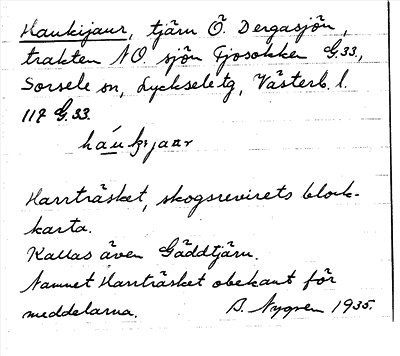 Haukijaur, tjärn Ö. Dergasjön,
trakten NO. sjön Tjosokken G.33,
Sorsele sn, Lycksele tg, Västerb. l.
117 G.33.
háukjaur
Harrträsket, skogsrevirets block-
karta.
Kallas även Gäddtjärn.
Namnet Harrträsket obekant för
meddelarna. B. Nygren 1935.